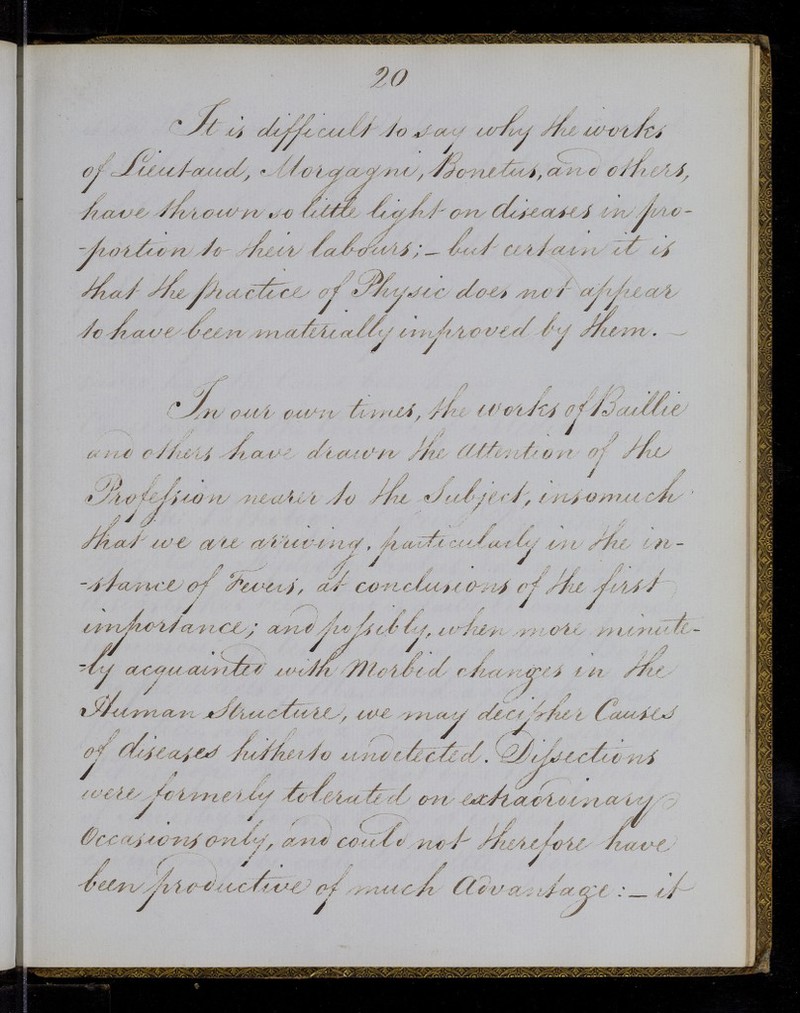 20
It is difficult to say why the works
of Lieutaud, Morgagni, Bonetus, and others,
have thrown so little light on diseases in pro-
-portion to their labours; – but certain it is
that the practice of Physic does not appear
to have been materially improved by them. –
In our own times, the works of Baillie
and others have drawn the Attention of the
Profeſsion nearer to the Subject, insomuch
that we are arriving, particularly in the in-
-stance of Fevers, at conclusions of the first
importance; and poſsibly, when more minute-
-ly acquainted with Morbid changes in the
Human Structure, we may decipher Causes
of diseases hitherto undetected. Diſsections
were formerly tolerated on extraordinary
Occasions only, and could not therefore have
been productive of much Advantage: – it